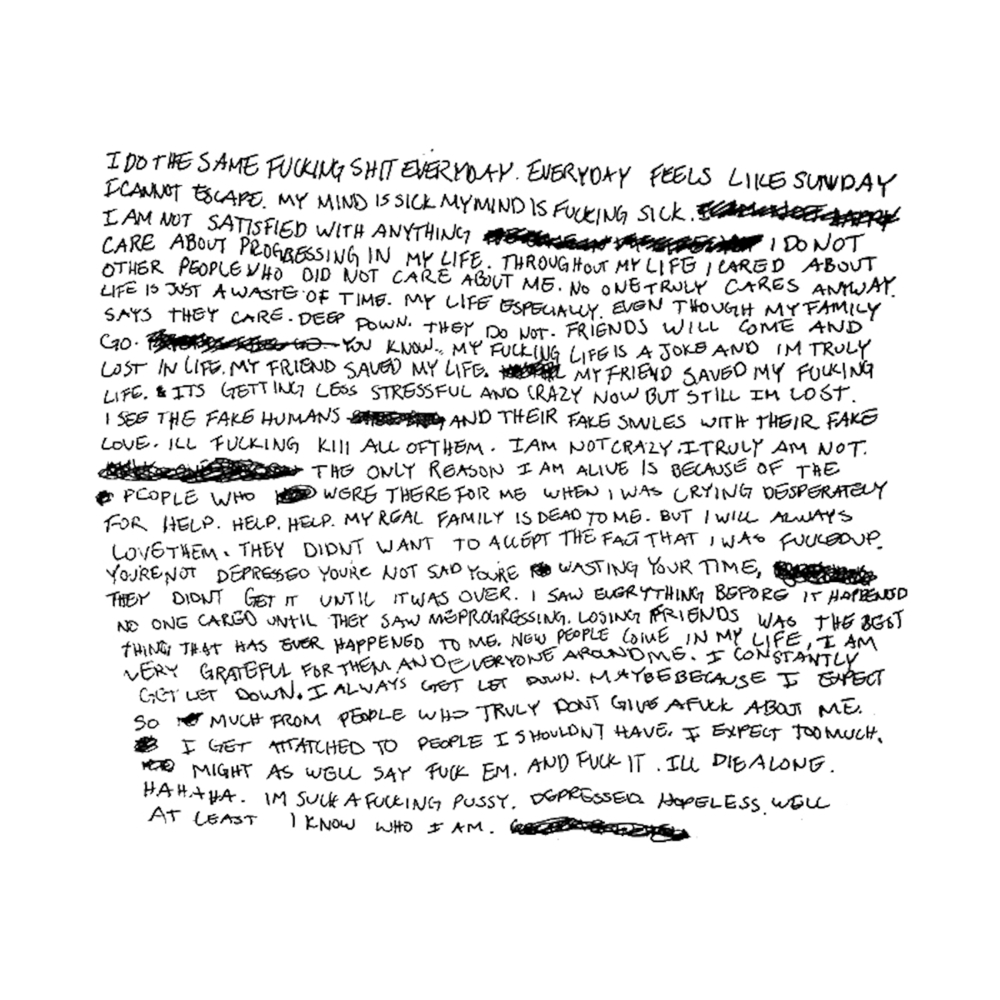 I DO THE SAME FUCKING SHIT EVERYDAY. EVERYDAY FEELS LIKE SUNDAY
I CANNOT ESCAPE. MY MIND IS SICK MY MIND IS FUCKING SICK.
I AM NOT SATISFIED WITH ANYTHING I DO NOT
CARE ABOUT PROGRESSING IN MY LIFE. THROUGHOUT MY LIFE I CARED ABOUT
OTHER PEOPLE WHO DID NOT CARE ABOUT ME. NO ONE TRULY CARES ANYWAY.
LIFE IS JUST A WASTE OF TIME. MY LIFE ESPECIALLY. EVEN THOUGH MY FAMILY
SAYS THEY CARE. DEEP DOWN. THEY DO NOT. FRIENDS WILL COME AND
GO. YOU KNOW.. MY FUCKING LIFE IS A JOKE AND IM TRULY
LOST IN LIFE. MY FRIEND SAVED MY LIFE. MY FRIEND SAVED MY FUCKING
LIFE. & ITS GETTING LESS STRESSFUL AND CRAZY NOW BUT STILL IM LOST.
I SEE THE FAKE HUMANS AND THEIR FAKE SMILES WITH THEIR FAKE
LOVE. ILL FUCKING KILL ALL OF THEM. I AM NOT CRAZY. I TRULY AM NOT.
THE ONLY REASON I AM ALIVE IS BECAUSE OF THE
PEOPLE WHO WERE THERE FOR ME WHEN I WAS CRYING DESPERATELY
FOR HELP. HELP. HELP. MY REAL FAMILY IS DEAD TO ME. BUT I WILL ALWAYS
LOVE THEM. THEY DIDNT WANT TO ACCEPT THE FACT THAT I WAS FUCKED UP.
YOURE NOT DEPRESSED YOURE NOT SAD YOURE WASTING YOUR TIME,
THEY DIDNT GET IT UNTIL IT WAS OVER. I SAW EVERYTHING BEFORE IT HAPPENED
NO ONE CARED UNTIL THEY SAW ME PROGRESSING. LOSING FRIENDS WAS THE BEST
THING THAT HAS EVER HAPPENED TO ME. NEW PEOPLE COME IN MY LIFE, I AM
VERY GRATEFUL FOR THEM AND EVERYONE AROUND ME. I CONSTANTLY
GET LET DOWN. I ALWAYS GET LET DOWN. MAYBE BECAUSE I EXPECT
SO MUCH FROM PEOPLE WHO TRULY DONT GIVE A FUCK ABOUT ME.
I GET ATTATCHED TO PEOPLE I SHOULDNT HAVE. I EXPECT TOO MUCH.
MIGHT AS WELL SAY FUCK EM. AND FUCK IT. ILL DIE ALONE.
HAHAHA. IM SUCH A FUCKING PUSSY. DEPRESSED HOPELESS. WELL
AT LEAST I KNOW WHO I AM.